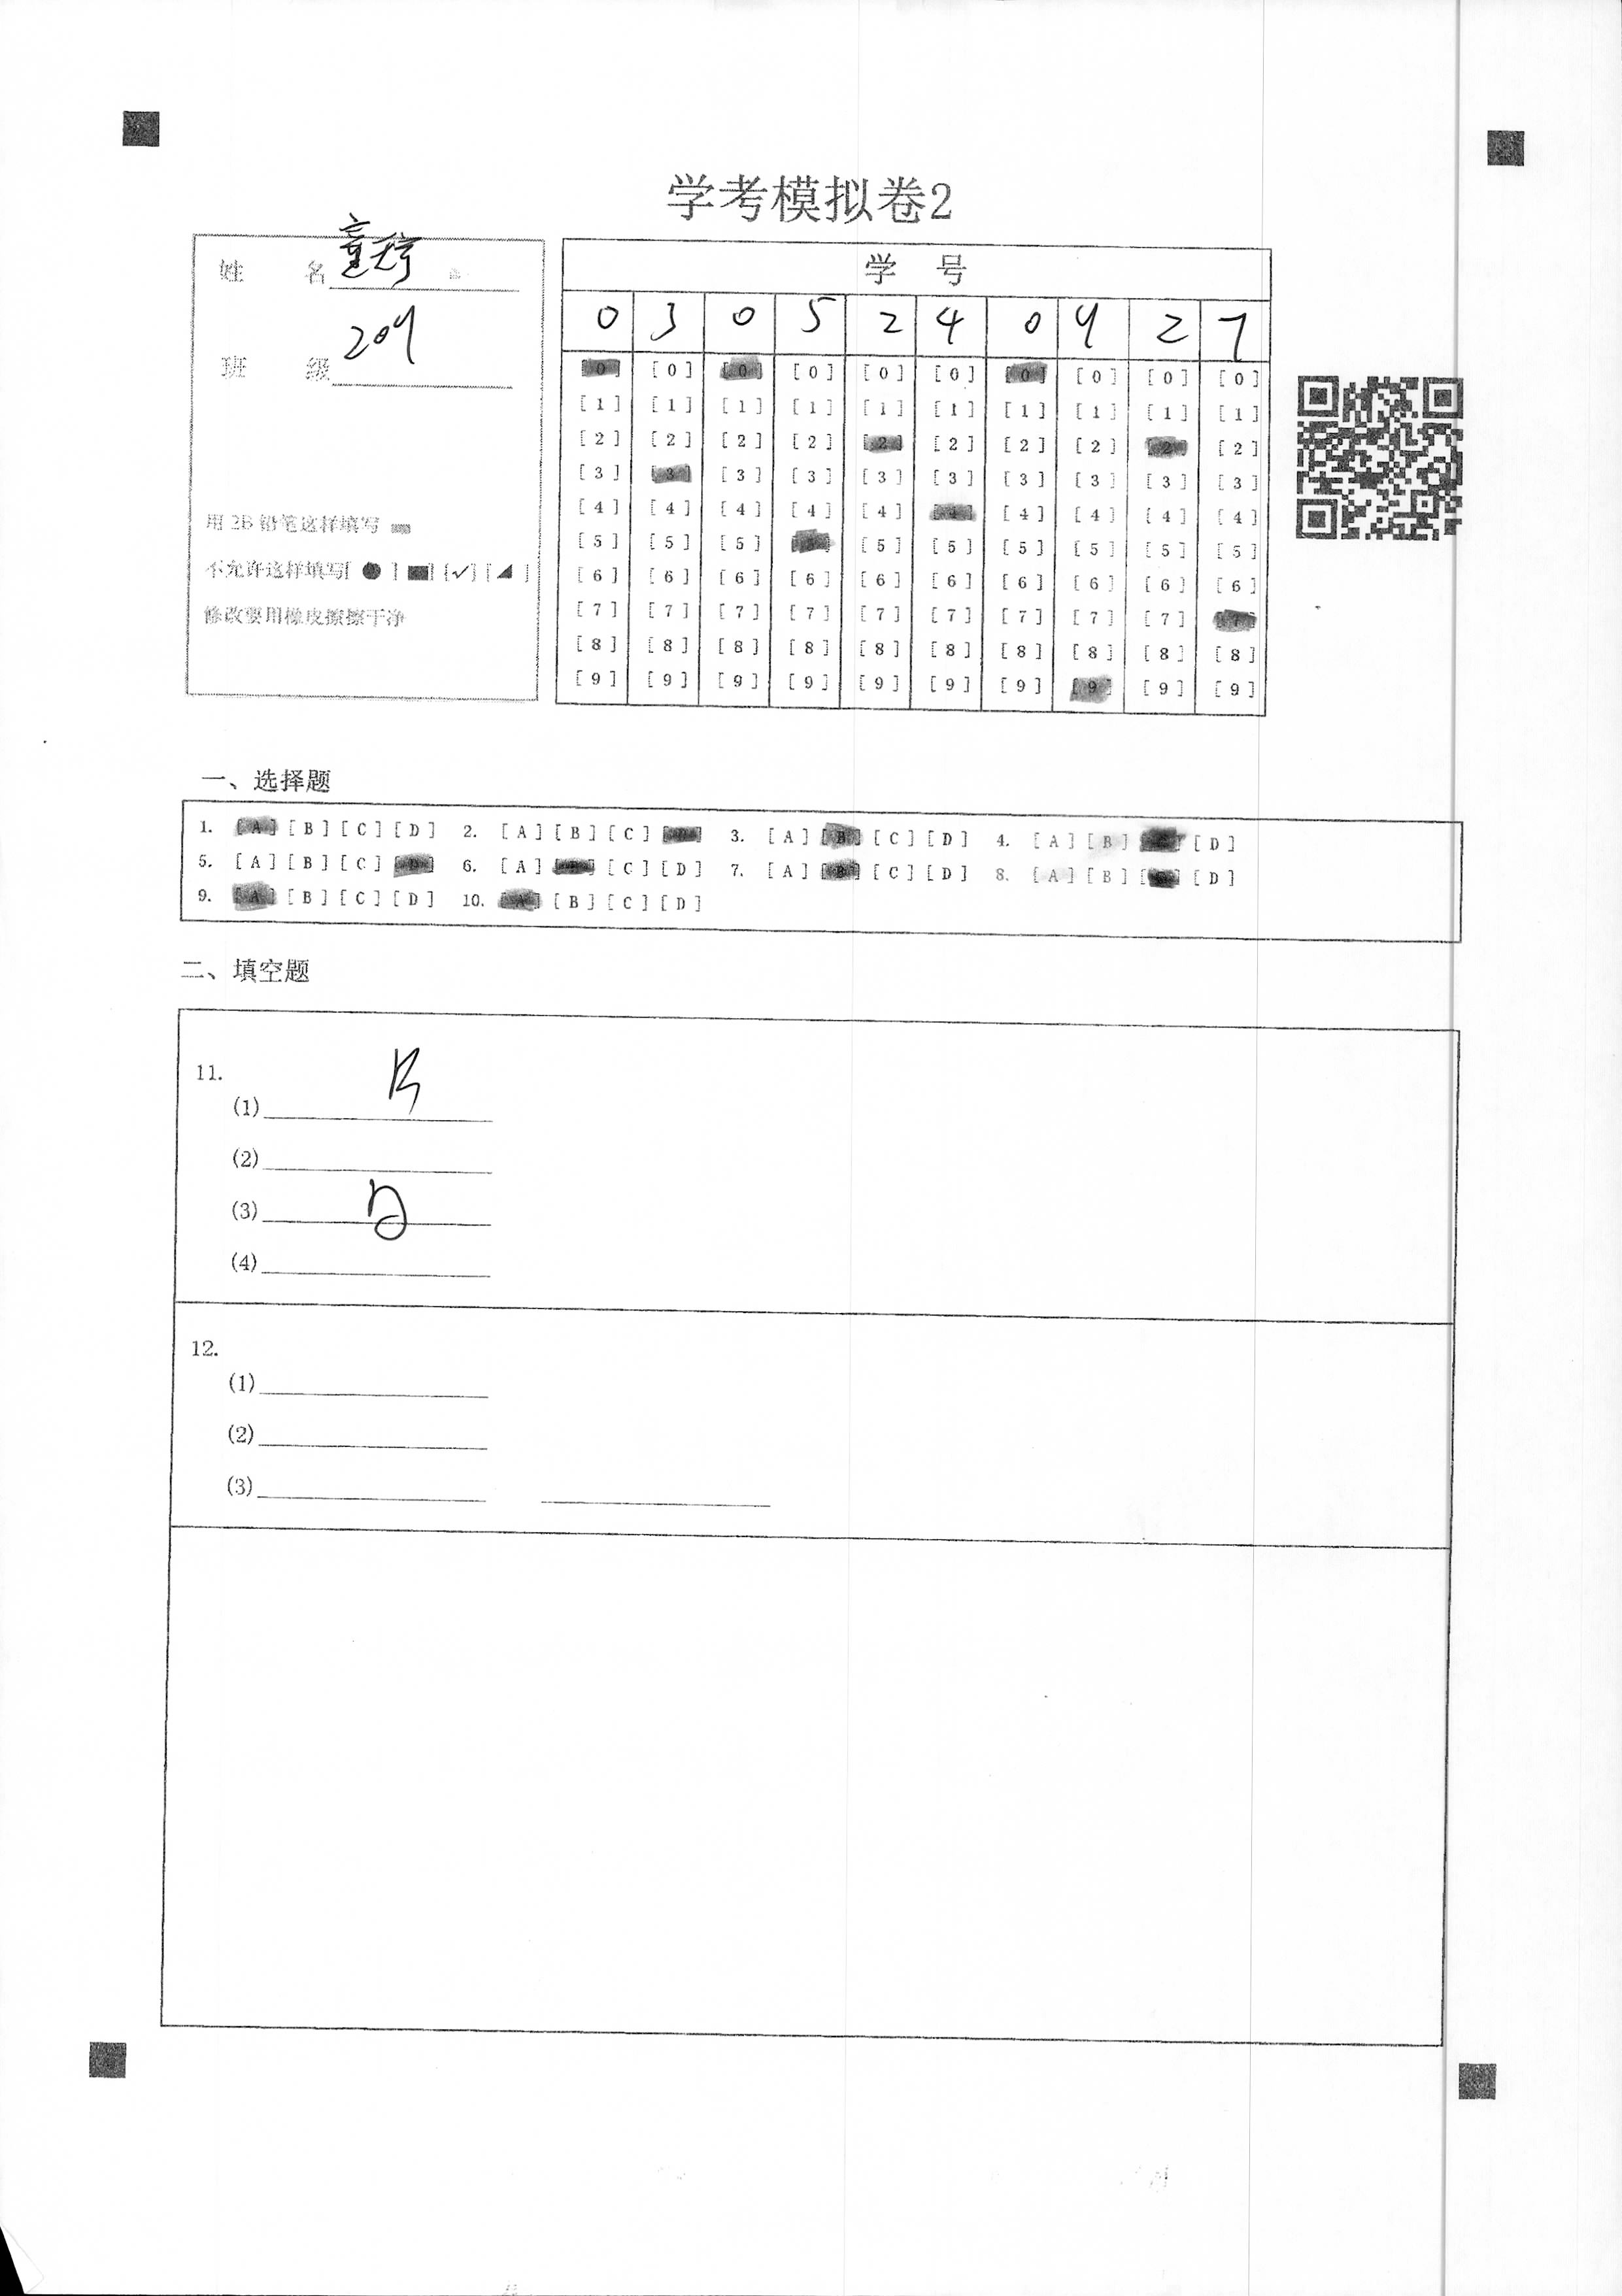 学考模拟卷2
姓 名 童天宇
班 级 209
用 2B 铅笔这样填写
不允许这样填写[ ● ] [■] [✓] [◢ ]
修改要用橡皮擦擦干净
学 号
0 3 0 5 2 4 0 9 2 7
[0] [0] [0] [0] [0] [0] [0] [0] [0] [0]
[1] [1] [1] [1] [1] [1] [1] [1] [1] [1]
[2] [2] [2] [2] [2] [2] [2] [2] [2] [2]
[3] [3] [3] [3] [3] [3] [3] [3] [3] [3]
[4] [4] [4] [4] [4] [4] [4] [4] [4] [4]
[5] [5] [5] [5] [5] [5] [5] [5] [5] [5]
[6] [6] [6] [6] [6] [6] [6] [6] [6] [6]
[7] [7] [7] [7] [7] [7] [7] [7] [7] [7]
[8] [8] [8] [8] [8] [8] [8] [8] [8] [8]
[9] [9] [9] [9] [9] [9] [9] [9] [9] [9]
一、选择题
1. [A] [B] [C] [D] 2. [A] [B] [C] [D] 3. [A] [B] [C] [D] 4. [A] [B] [C] [D]
5. [A] [B] [C] [D] 6. [A] [B] [C] [D] 7. [A] [B] [C] [D] 8. [A] [B] [C] [D]
9. [A] [B] [C] [D] 10. [A] [B] [C] [D]
二、填空题
11.
(1) B
(2)
(3) D
(4)
12.
(1)
(2)
(3)